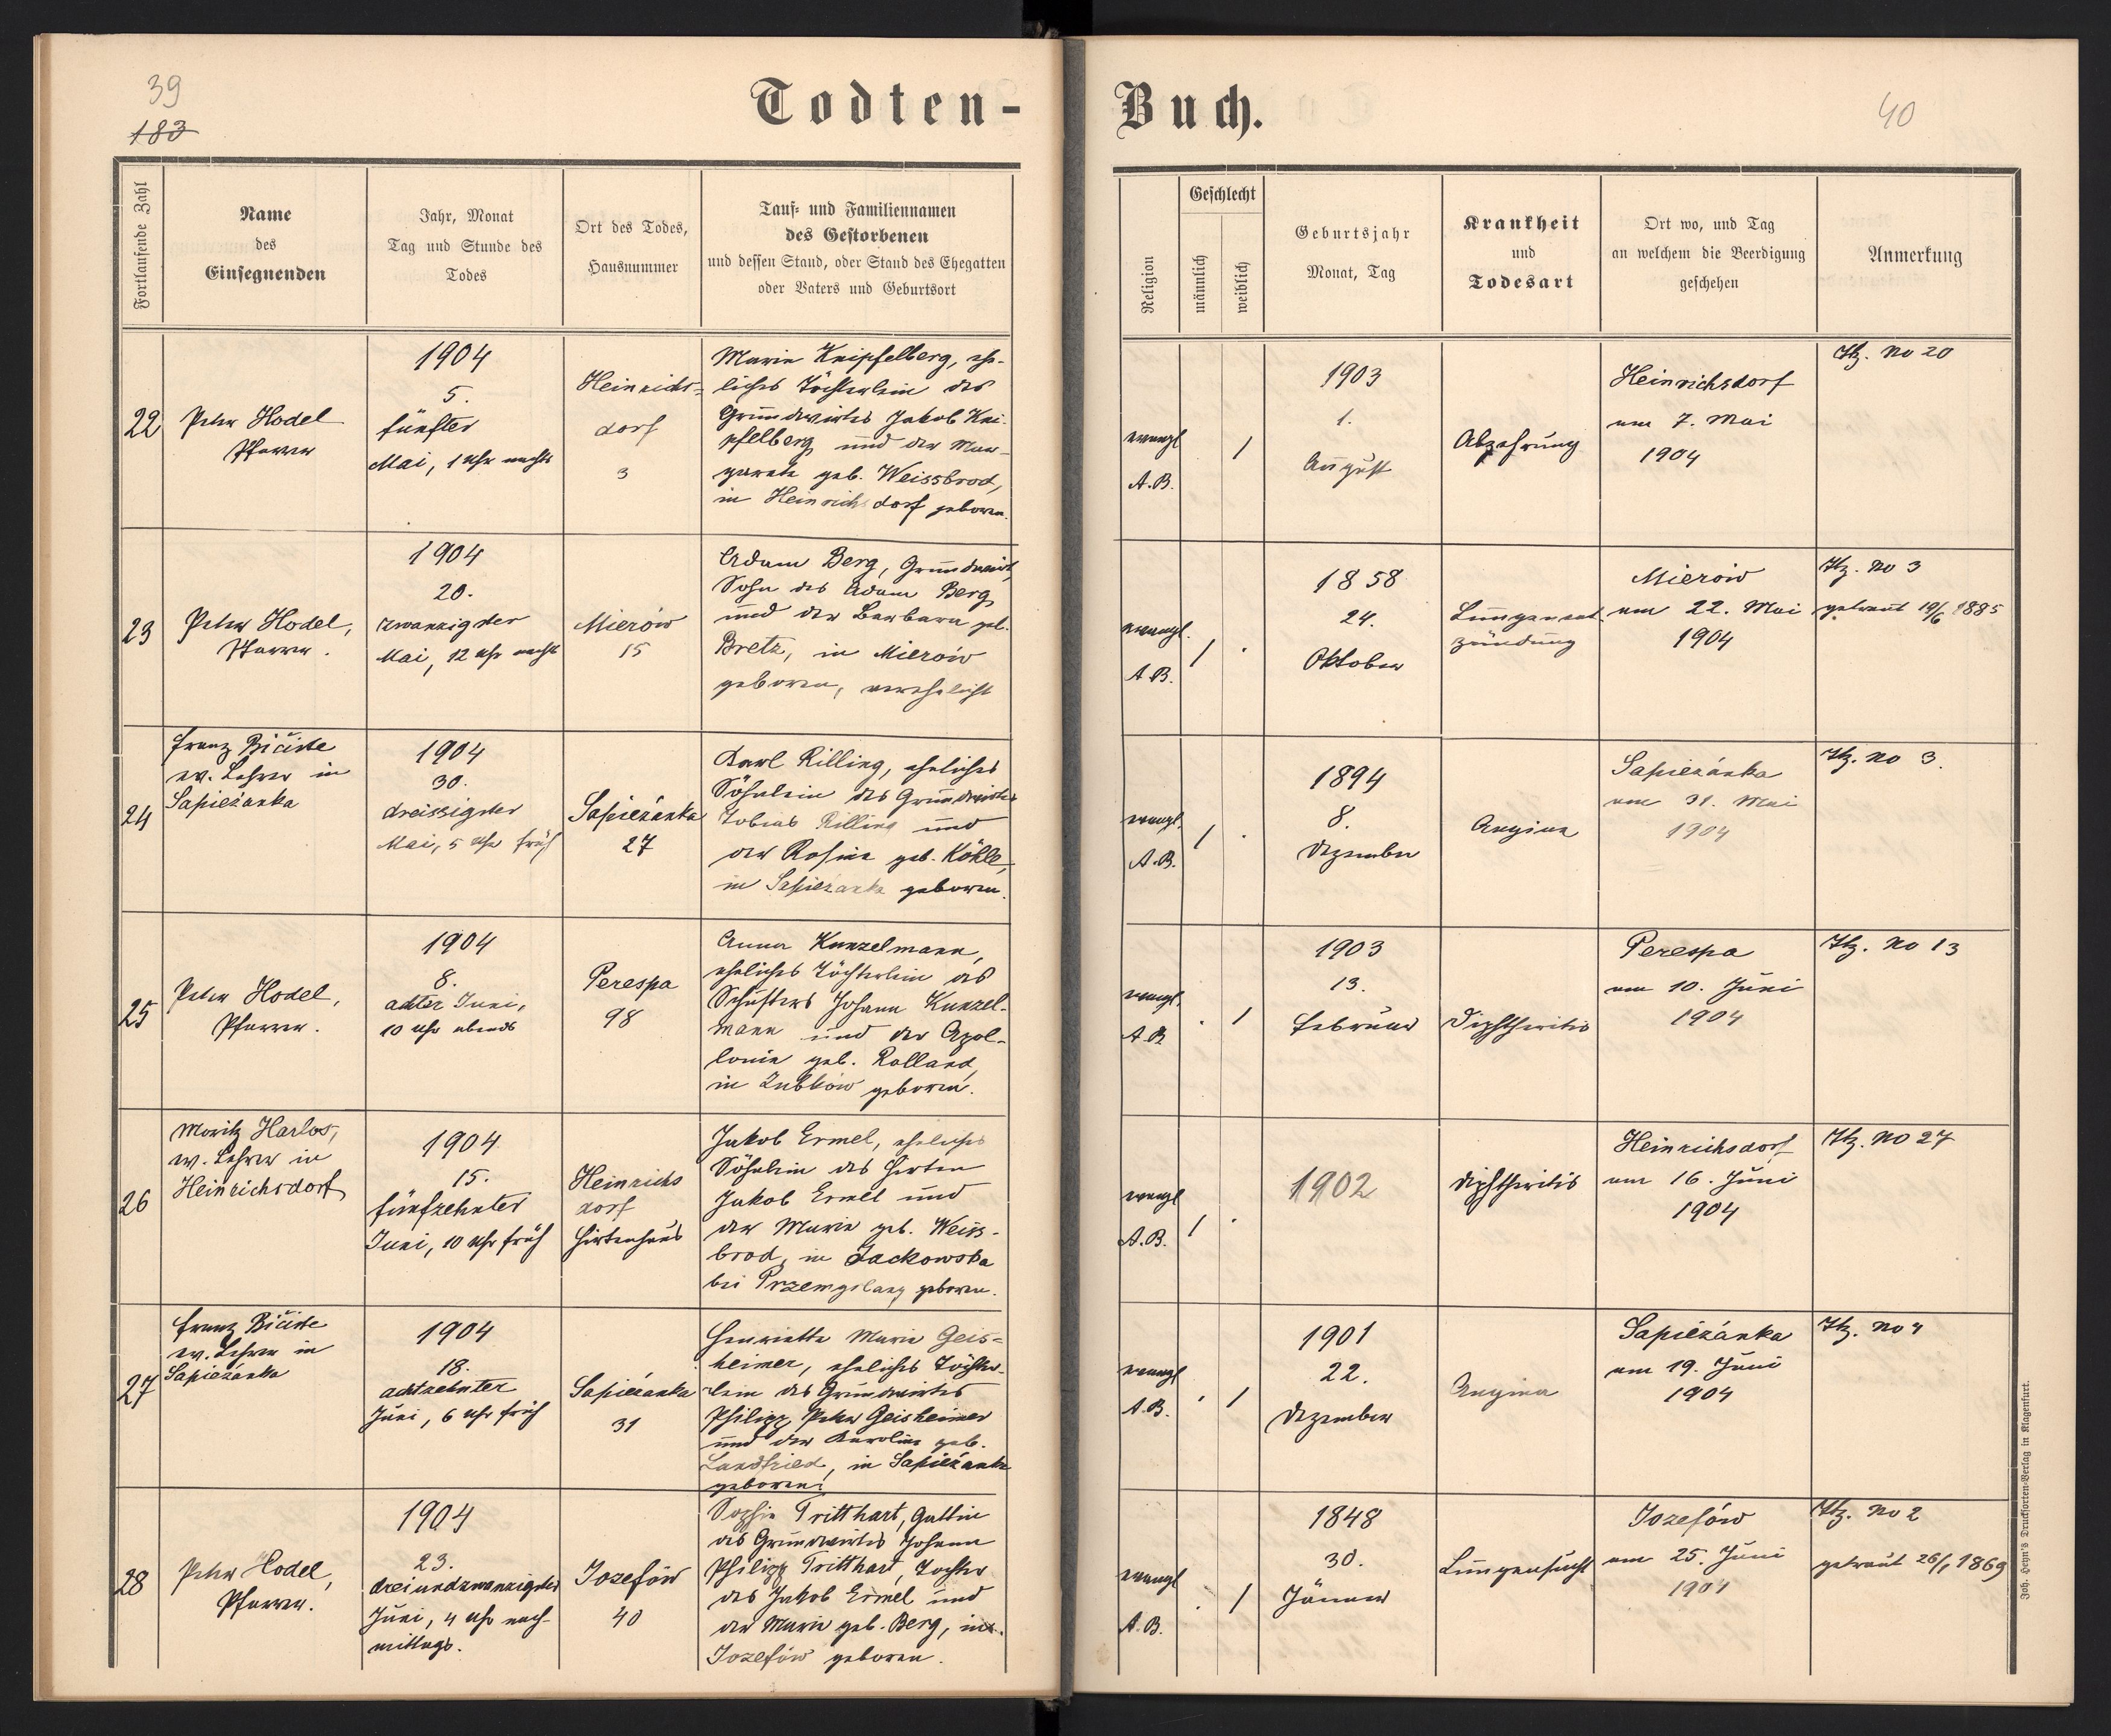 39
183
Todten-
Buch.
40
Fortlaufende Zahl
Name
des
Einsegnenden
Jahr, Monat
Tag und Stunde des
Todes
Ort des Todes,
Hausnummer
Tauf- und Familiennamen
des Gestorbenen
und dessen Stand, oder Stand des Ehegatten
oder Vaters und Geburtsort
Religion
Geschlecht
männlich
weiblich
Geburtsjahr
Monat, Tag
Krankheit
und
Todesart
Ort wo, und Tag
an welchem die Beerdigung
geschehen
Anmerkung
22
Peter Hodel
Pfarrer
1904
5.
fünfter
Mai, 1 Uhr nachts
Heinrichs-
dorf
3
Marie Knipfelberg, ehe-
liches Töchterlein des
Grundwirtes Jakob Kni-
pfelberg und der Mar-
garete geb. Weissbrod,
in Heinrichsdorf geboren.
evangl
A.B.
1
1903
1.
August
Abzehrung
Heinrichsdorf
am 7. Mai
1904
Itz. No 20
23
Peter Hodel,
Pfarrer.
1904
20.
zwanzigster
Mai, 12 Uhr nachts
Mierów
15
Adam Berg, Grundwirt,
Sohn des Adam Berg
und der Barbara geb.
Bretz, in Mierów
geboren, verehelicht
evangl.
A.B.
1 .
1858
24.
Oktober
Lungenent-
zündung
Mierów
am 22. Mai
1904
Itz. No 3
getraut 19/6 1885
24
Franz Bičiste
ev. Lehrer in
Sapieżanka
1904
30.
dreissigster
Mai, 5 Uhr früh
Sapieżanka
27
Karl Rilling, eheliches
Söhnlein des Grundwirtes
Tobias Rilling und
der Rosina geb. Köhle,
in Sapieżanka geboren.
evangl.
A.B.
1 .
1894
8.
Dezember
Angina
Sapieżanka
am 31. Mai
1904
Itz. No 3.
25
Peter Hodel,
Pfarrer.
1904
8.
achter Juni,
10 Uhr abends
Perespa
98
Anna Kunzelmann,
eheliches Töchterlein des
Schusters Johann Kunzel-
mann und der Apol-
lonia geb. Rolland,
in Zubków geboren.
evangl.
A.B.
. 1
1903
13.
Februar
Diphtheritis
Perespa
am 10. Juni
1904
Itz. No 13
26
Moritz Harlos,
ev. Lehrer in
Heinrichsdorf
1904
15.
fünfzehnter
Juni, 10 Uhr früh
Heinrichs
dorf
Hirtenhaus
Jakob Ermel, eheliches
Söhnlein des Hirten
Jakob Ermel und
der Marie geb. Weiss-
brod, in Lackowska
bei Przemyślany geboren.
evangl
A.B.
1 .
1902
Diphtheritis
Heinrichsdorf
am 16. Juni
1904
Itz. No 27
27
Franz Bičiste
ev. Lehrer in
Sapieżanka
1904
18.
achtzehnter
Juni, 6 Uhr früh
Sapieżanka
31
Henriette Marie Geis-
heimer, eheliches Töchter-
lein des Grundwirtes
Philipp Peter Geisheimer
und der Karoline geb.
Landfried, in Sapieżanka
geboren.
evangl
A.B.
. 1
1901
22.
Dezember
Angina
Sapieżanka
am 19. Juni
1904
Itz. No 4
28
Peter Hodel,
Pfarrer.
1904
23.
dreiundzwanzigster
Juni, 4 Uhr nach-
mittags.
Jozefów
40
Sophie Tritthart, Gattin
des Grundwirtes Johann
Philipp Tritthart, Tochter
des Jakob Ermel und
der Marie geb. Berg, in
Jozefów geboren.
evangl
A.B.
. 1
1848
30.
Jänner
Lungensucht
Jozefów
am 25. Juni
1904
Itz. No 2
getraut 26/1 1869
Joh. Heyn's Drucksorten-Verlag in Klagenfurt.